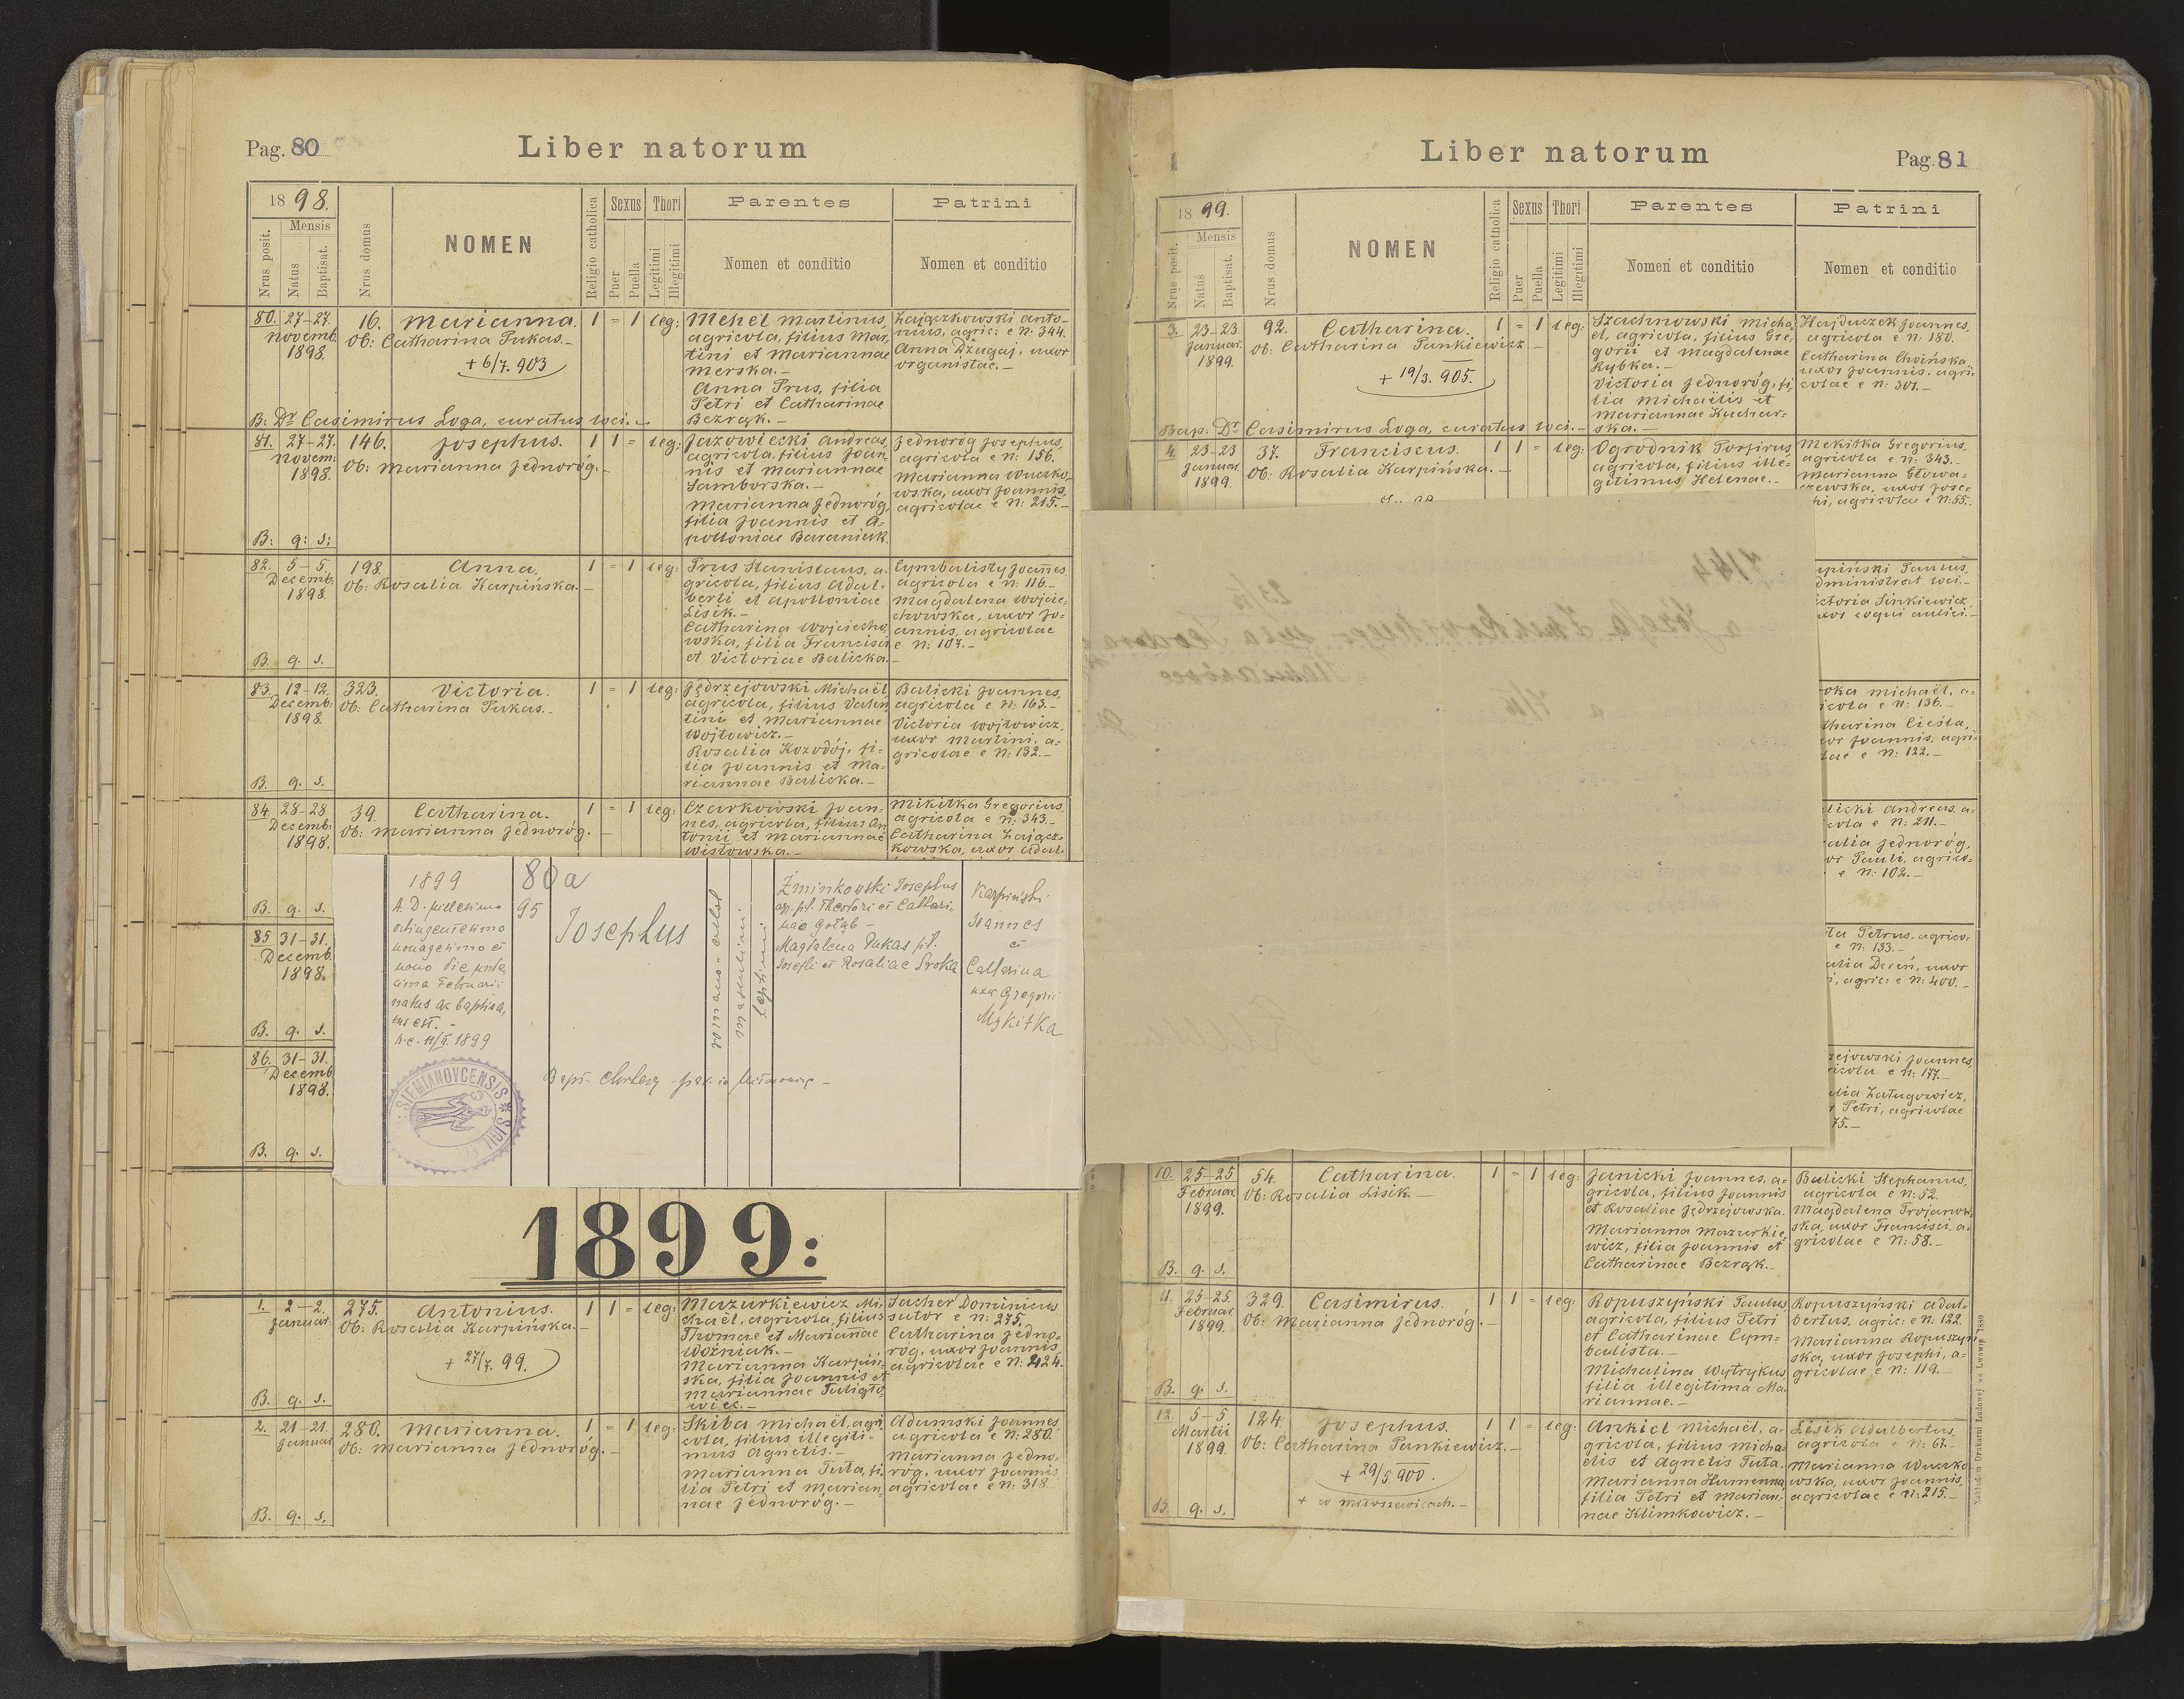 Pag. 80
Liber natorum
1898.
Nrus posit.
Mensis
Natus
Baptisat.
Nrus domus
NOMEN
Religio catholica
Sexus
Puer
Puella
Thori
Legitimi
Illegitimi
Parentes
Nomen et conditio
Patrini
Nomen et conditio
80. 27-27. Novemb. 1898.
16. Marianna.
Ob: Catharina Pukas.-
+ 6/7. 903
1 = 1 leg:
Mehel Martinus,
agricola, filius Mar-
tini et Mariannae
Merska.-
Anna Prus, filia
Petri et Catharinae
Bezrąk.-
Zajączkowski Anto-
nius, agric: e N: 344.
Anna Dżugaj, uxor
organistae.-
B: Dr Casimirus Loga, curatus loci.-
81. 27-27. Novem: 1898.
146. Josephus.
Ob: Marianna Jednoróg.-
1 1 = leg:
Jazowiecki Andreas,
agricola, filius Joan-
nis et Mariannae
Samborska.-
Marianna Jednoróg,
filia Joannis et A-
polloniae Baraniak.
Jednoróg Josephus,
agricola e N: 156.
Marianna
uxor Joannis,
agricolae e N: 215.-
B: q: s:
82. 5-5. Decemb. 1898.
198. Anna.
Ob: Rosalia Karpińska.-
1 = 1 leg:
Prus Stanislaus, a-
gricola, filius Adal-
berti et Apolloniae
Lisik.-
Catharina Wojciecho-
wska, filia Francisci
et Victoriae Balicka.-
Cymbalisty Joannes,
agricola e N: 116.-
Magdalena Wojcie-
chowska, uxor Jo-
annis, agricolae
e N: 107.-
B. q. s.
83. 12-12. Decemb: 1898.
323. Victoria.
Ob: Catharina Pukas.-
1 = 1 leg:
Jędrzejowski Michaël,
agricola, filius Valen-
tini et Mariannae
Wojtowicz.-
Rosalia Kozodój, fi-
lia Joannis et Ma-
riannae Balicka.-
Balicki Joannes,
agricola e N: 163.-
Victoria Wojtowicz,
uxor Martini, a-
gricolae e N: 132.-
B. q. s.
84. 28-28 Decemb: 1898.
39. Catharina.
Ob: Marianna Jednoróg.-
1 = 1 leg:
Czarkowski Joan-
nes, agricola, filius An-
tonii et Mariannae
Wisłowska.-
Mikitka Gregorius,
agricola e N: 343.-
Catharina Zającz-
kowska, uxor Adal-
B. q. s.
85 31-31. Decemb. 1898.
B. q. s.
86. 31-31. Decemb. 1898.
B. q. s.
1899
A. D. millesimo
octingentesimo
nonagesimo et
nono die
Februarii
natus ac baptisa-
tus est.-
h.e. 11/II. 1899
80a
95
Josephus
romano-cathol
masculini
legitimi
Żminkowski Josephus
ap. fil. Theodori et Cathari-
nae Gołąb -
Magdalena Pukas fil.
Josephi et Rosaliae Sroka
Karpiński
Joannes
et
Catharina
uxor Gregorii
Mykitka
SIEMIANOVCENSIS * SIGIL
1899:
1. 2-2. Januar.
275. Antonius.
Ob: Rosalia Karpińska.-
+ 27/7. 99.
1 1 = leg:
Mazurkiewicz Mi-
chaël, agricola, filius
Thomae et Mariannae
Woźniak.-
Marianna Karpiń-
ska, filia Joannis et
Mariannae
Sacher Dominicus
sutor e N: 275.
Catharina Jedno-
róg, uxor Joannis,
agricolae e N: 424.
B. q. s.
2. 21-21. Januar
280. Marianna.
Ob: Marianna Jednoróg.-
1 = 1 leg:
Skiba Michaël, agri-
cola, filius illegiti-
mus Agnetis.-
Marianna Tuta, fi-
lia Petri et Marian-
nae Jednoróg.-
Adamski Joannes
agricola e N: 280.
Marianna Jedno-
róg, uxor Joannis
agricolae e N: 318.
B. q. s.
Liber natorum
Pag. 81
1899.
Nrus posit.
Mensis
Natus
Baptisat.
Nrus domus
NOMEN
Religio catholica
Sexus
Puer
Puella
Thori
Legitimi
Illegitimi
Parentes
Nomen et conditio
Patrini
Nomen et conditio
3. 23-23 Januar. 1899.
92. Catharina.
Ob: Catharina Pankiewicz.-
+ 19/3. 905.
1 = 1 leg:
Szachnowski Micha-
ël, agricola, filius Gre-
gorii et Magdalenae
Rybka.-
Victoria Jednoróg, fi-
lia Michaëlis et
Mariannae Kuchar-
ska.-
Hajduczek Joannes,
agricola e N: 180.
Catharina Choińska,
uxor Joannis, agri-
colae e N: 301.-
Bap: Dr Casimirus Loga, curatus loci.-
4. 23-23 Januar. 1899.
37. Franciscus.
Ob: Rosalia Karpińska.-
1 1 = leg:
Ogrodnik Porfirus,
agricola, filius ille-
gitimus Helenae.-
Mekitka Gregorius,
agricola e N: 343.-
Marianna Głowa-
czewska, uxor Jose-
phi, agricolae e N: 55.-
rpiński Paulus,
dministrat loci.-
ictoria Sinkiewicz,
uxor coqui aulici.-
oka Michaël, a-
icola e N: 136.-
tharina Cieśla,
or Joannis, agri-
lae e N: 122.-
licki Andreas, a-
cola e N: 211.-
alia Jednoróg,
or Pauli, agrico-
e N: 102.-
ta Petrus, agrico-
e N: 153.-
alia Dereń, uxor
i, agric: e N: 400.-
zejowski Joannes,
ricola e N: 177.-
alia Załugowicz,
r Petri, agricolae
75.-
10. 25-25 Februar. 1899.
54. Catharina.
Ob: Rosalia Lisik.-
1 = 1 leg:
Janicki Joannes, a-
gricola, filius Joannis
et Rosaliae Jędrzejowska.
Marianna Mazurkie-
wicz, filia Joannis et
Catharinae Bezrąk.-
Balicki Stephanus,
agricola e N: 52.
Magdalena Trojanow-
ska, uxor Francisci, a-
gricolae e N: 58.-
B. q. s.
11. 25-25. Februar. 1899.
329. Casimirus.
Ob: Marianna Jednoróg.-
1 1 = leg:
Ropuszyński Paulus,
agricola, filius Petri
et Catharinae Cym-
balista.-
Michalina Wytrykus
filia illegitima Ma-
riannae.-
Ropuszyński Adal-
bertus, agric: e N: 122.
Marianna Ropuszyń-
ska, uxor Josephi, a-
gricolae e N: 119.-
B. q. s.
12. 5-5. Martii 1899.
124. Josephus.
Ob: Catharina Pankiewicz.-
+ 29/5. 900.
+ w Miłoszewicach.-
1 1 = leg:
Ankiel Michaël, a-
gricola, filius Micha-
ëlis et Agnetis Tuta.
Marianna Humenna,
filia Petri et Marian-
nae Klimkowicz.-
Lisik Adalbertus,
agricola e N: 67.-
Marianna
uxor Joannis,
agricolae e N: 215.-
B. q. s.
Nakładem Drukarni Ludowej we Lwowie 1889